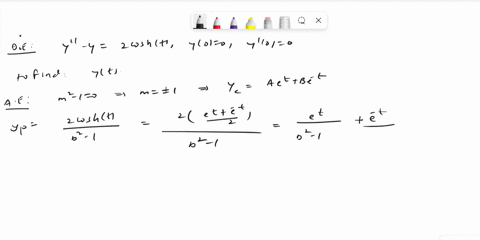 D.E: y'' - y = 2cosh(t), y(0)=0, y'(0)=0
to find: y(t)
A.E: m²-1=0 ⇒ m=±1 ⇒ y_c = Ae^t + Be^-t
y_p = 2cosh(t) / D²-1 = 2(e^t + e^-t / 2) / D²-1 = e^t / D²-1 + e^-t